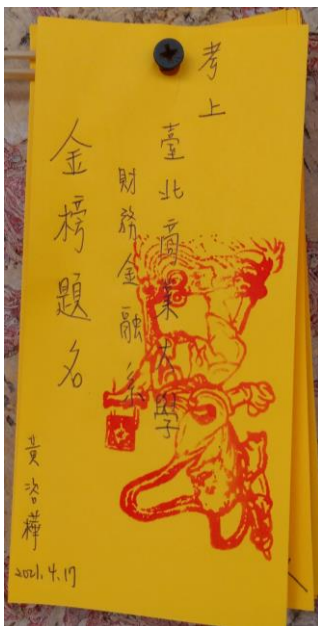 考上
臺北商業大學
財務金融系
金榜題名
黃咨樺
2021.4.17